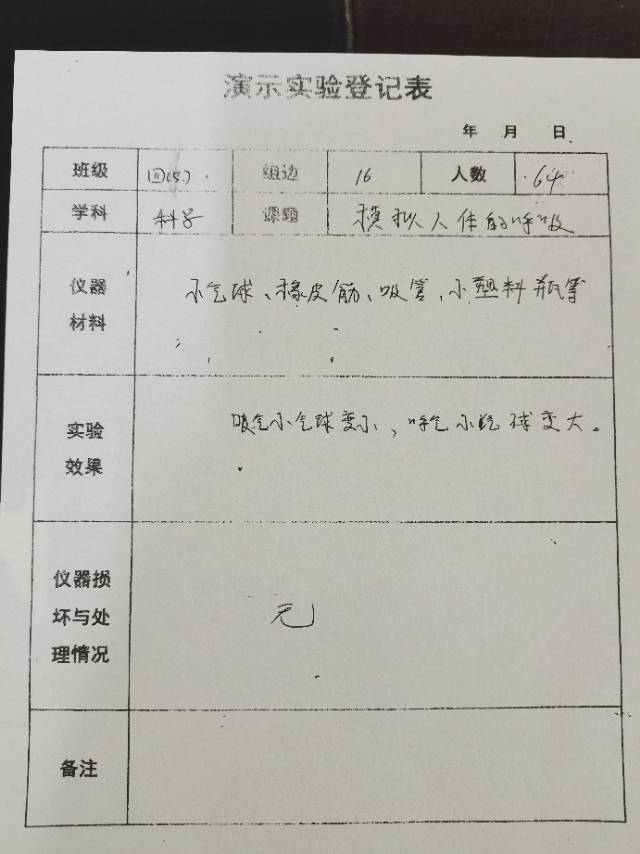 演示实验登记表
年 月 日
班级 四(5) 组边 16 人数 64
学科 科学 课题 模拟人体的呼吸
仪器材料 小气球、橡皮筋、吸管、小塑料瓶等
实验效果 吸气小气球变小，呼气小气球变大。
仪器损坏与处理情况 无
备注